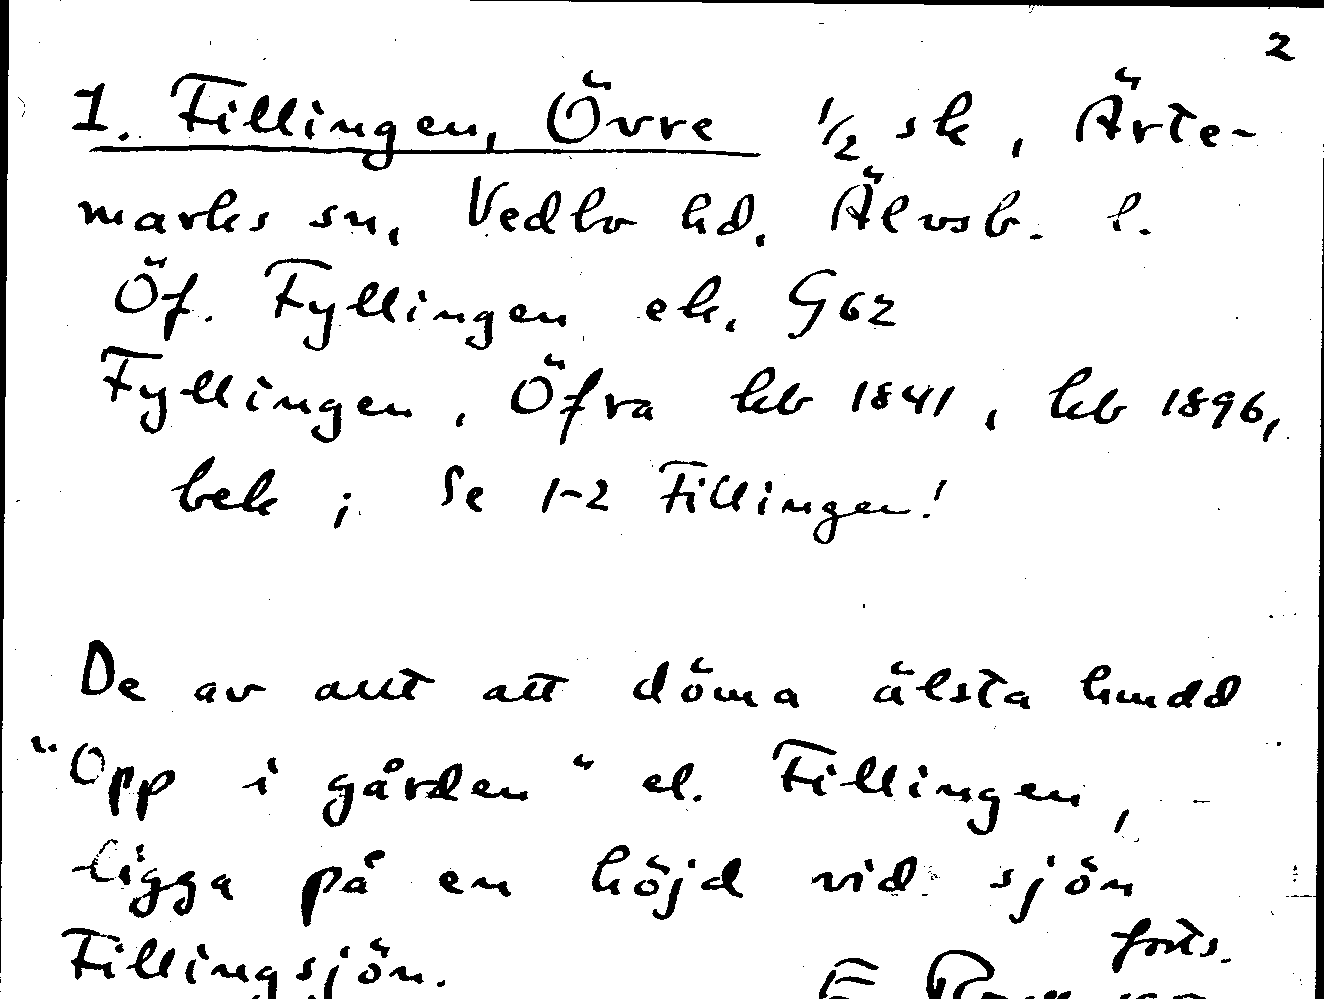 2
1. Fillingen, Övre 1/2 sk, Ärte-
marks sn, Vedbo hd, Älvsb. l.
Öf. Fyllingen ek, G62
Fyllingen, Öfra kb 1841, kb 1896,
bek; Se 1-2 Fillingen!
De av allt att döma älsta
"Opp i gården" el. Fillingen,
ligga på en höjd vid sjön
Fillingsjön.
forts.
E